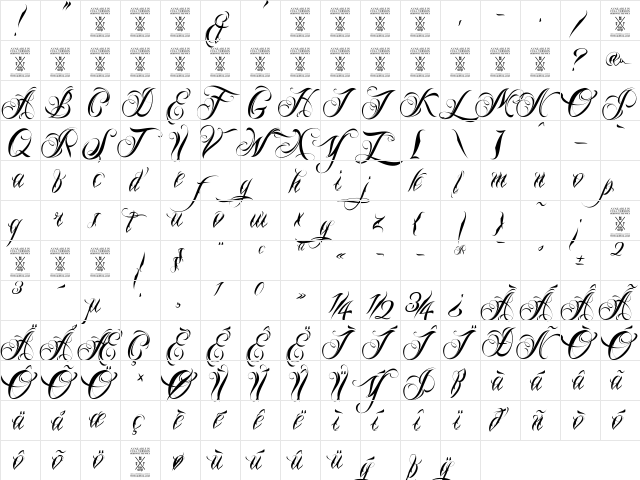 ! " & ' , - . /
? @
A B C D E F G H I J K L M N O P
Q R S T U V W X Y Z [ \ ] ^ _ `
a b c d e f g h i j k l m n o p
q r s t u v w x y z { | } ~ ¡
¦ § ¨ © ª « ¬ - ® ¯ ° ± 2
3 ´ µ · ¸ 1 º » 1/4 1/2 3/4 ¿ À Á Â Ã
Ä Å Æ Ç È É Ê Ë Ì Í Î Ï Ð Ñ Ò Ó
Ô Õ Ö × Ø Ù Ú Û Ü Ý Þ ß à á â ã
ä å æ ç è é ê ë ì í î ï ð ñ ò ó
ô õ ö ø ù ú û ü ý þ ÿ